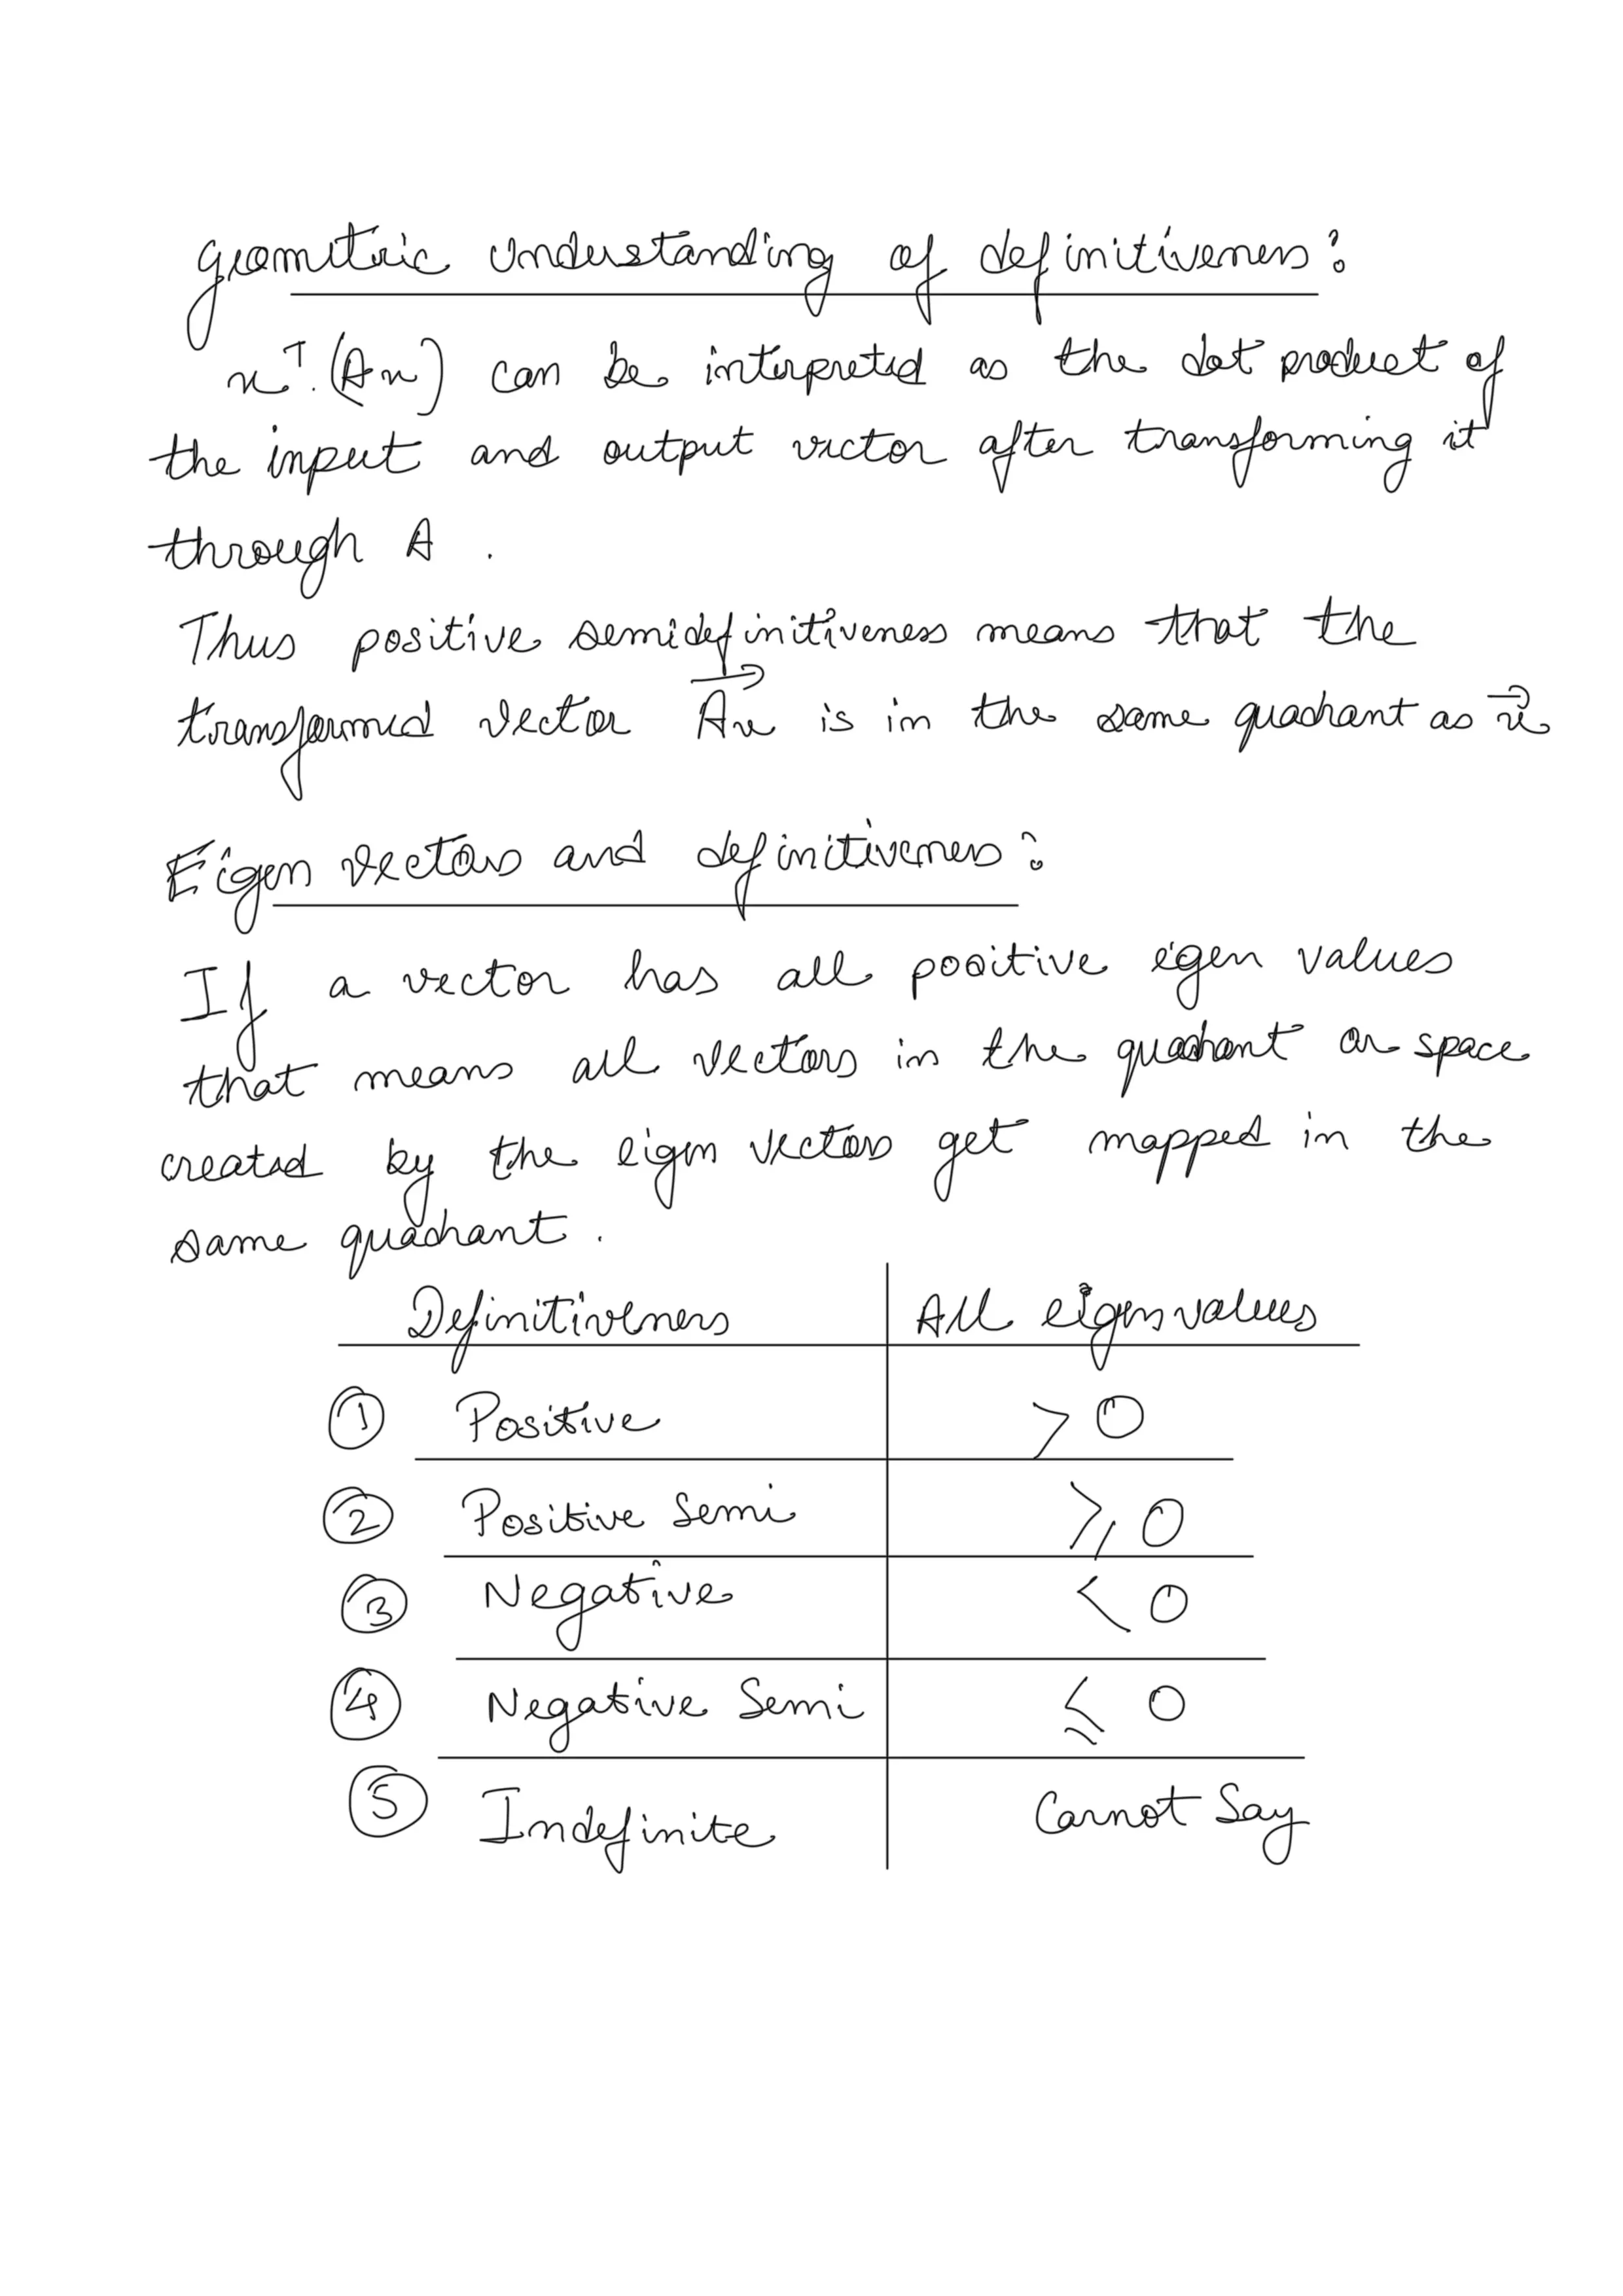 geometric understanding of definitiveness:
x^T.(Ax) can be interpreted as the dot product of
the input and output vector after transforming it
through A.
Thus positive semidefinitiveness means that the
transformed vector Ax is in the same quadrant as x
Eigen vectors and definitiveness:
If a vector has all positive eigen values
that means all vectors in the quadrant or space
created by the eigen vectors get mapped in the
same quadrant.
Definitiveness All eigen values
① Positive > 0
② Positive Semi ≥ 0
③ Negative < 0
④ Negative Semi ≤ 0
⑤ Indefinite Cannot Say